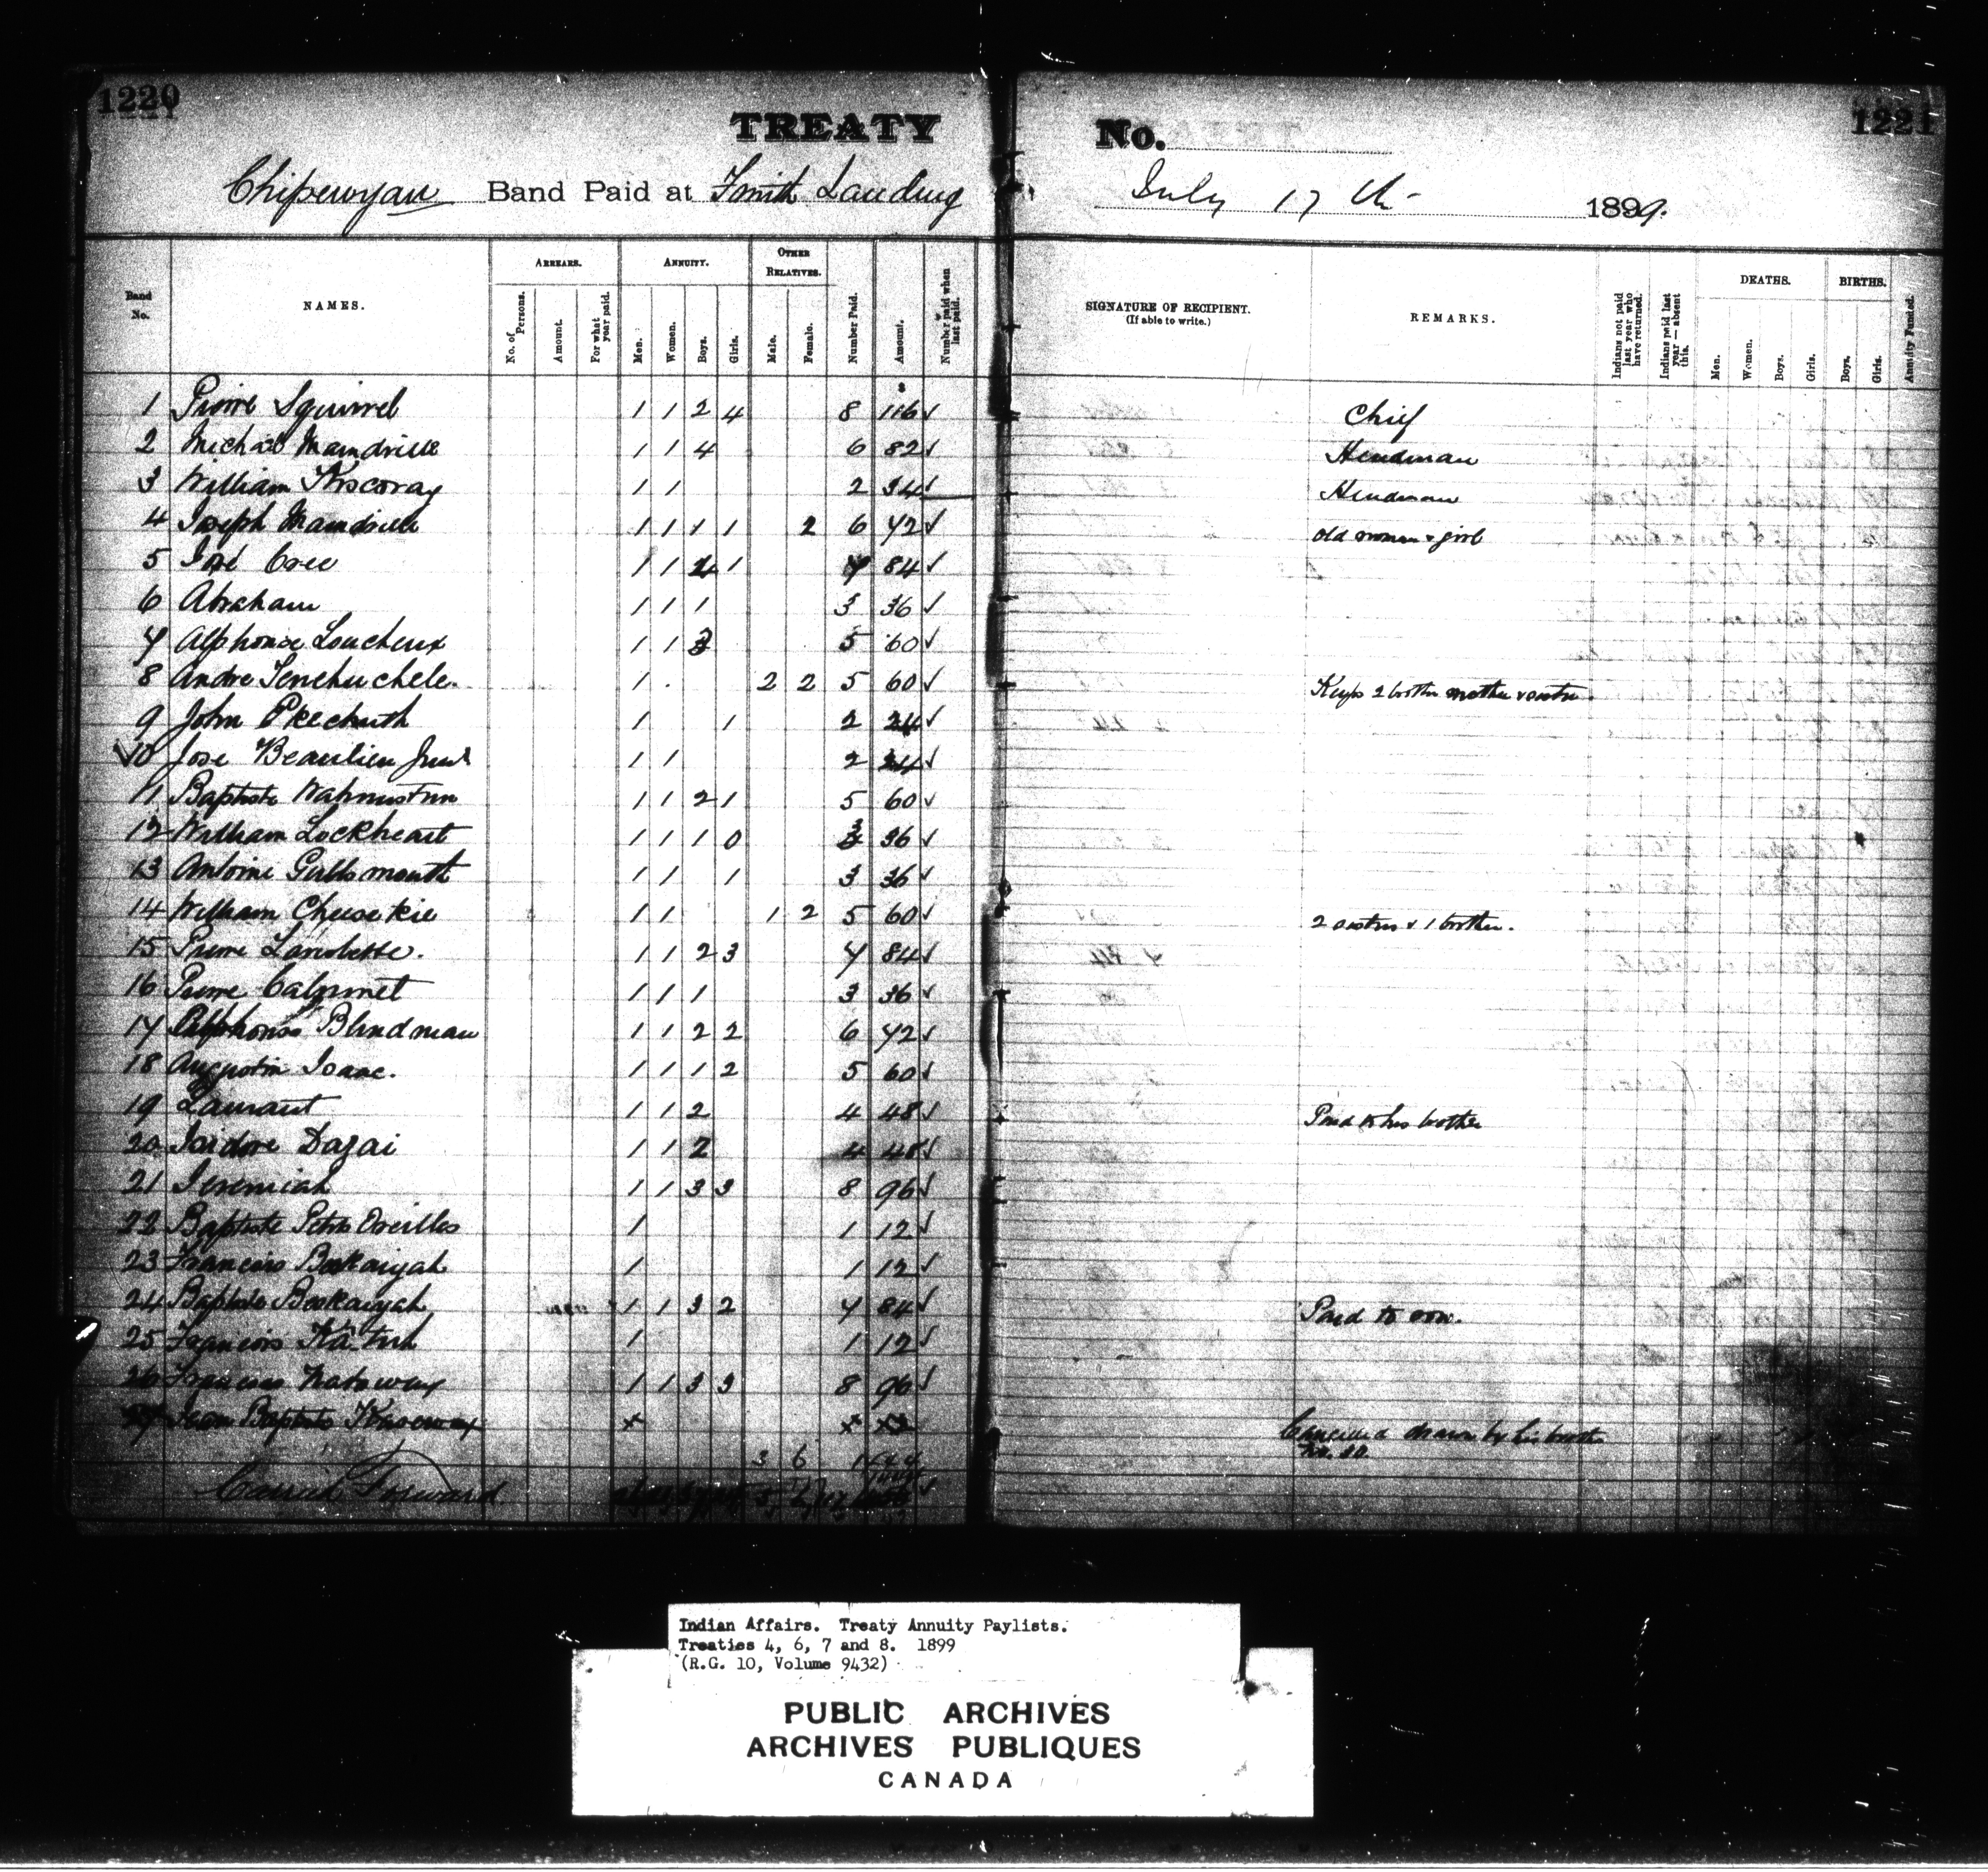 1220
1221
TREATY No.
Chipewyan Band Paid at Smith Landing July 17th 1899.
Band No.
NAMES.
ARREARS.
No. of Persons.
Amount.
For what year paid.
ANNUITY.
Men.
Women.
Boys.
Girls.
OTHER RELATIVES.
Male.
Female.
Number Paid.
Amount.
Number paid when last paid.
SIGNATURE OF RECIPIENT.
(If able to write.)
REMARKS.
Indians not paid last year who have returned.
Indians paid last year — absent this.
DEATHS.
Men.
Women.
Boys.
Girls.
BIRTHS.
Boys.
Girls.
Annuity Funded.
$
1 Pierre Squirrel 1 1 2 4 8 116 ✓ Chief
2 Michael Mamdrille 1 1 4 6 82 ✓ Headman
3 William Kiscoray 1 1 2 34 ✓ Headman
4 Joseph Mamdrille 1 1 1 1 2 6 72 ✓ old woman & girl
5 José Cree 1 1 4 1 7 84 ✓
6 Abraham 1 1 1 3 36 ✓
7 Alphonse Loucheux 1 1 3 5 60 ✓
8 Andre 1 2 2 5 60 ✓ Keeps 2 brother mother & sister
9 John 1 1 2 24 ✓
10 Jose Beaulieu 1 1 2 24 ✓
11 Baptiste 1 1 2 1 5 60 ✓
12 William Lockheart 1 1 1 0 3 36 ✓
13 Antoine Gullsmouth 1 1 1 3 36 ✓
14 William Cheesekie 1 1 1 2 5 60 ✓ 2 sisters & 1 brother.
15 Pierre 1 1 2 3 7 84 ✓
16 Pierre Calumet 1 1 1 3 36 ✓
17 Alphonse Blindman 1 1 2 2 6 72 ✓
18 Augustin Isaac. 1 1 1 2 5 60 ✓
19 Laurant 1 1 2 4 48 ✓ Paid to his brother
20 Isidore Dazai 1 1 2 4 48 ✓
21 Jeremiah 1 1 3 3 8 96 ✓
22 Baptiste Petits Oreilles 1 1 12 ✓
23 Francois Beekaiyah 1 1 12 ✓
24 Baptiste Beekaiyah 1 1 3 2 7 84 ✓ Paid to son.
25 Francois 1 1 12 ✓
26 Francois 1 1 3 3 8 96 ✓
27 Jean Baptiste x x Cancelled drawn by his brother
3 6
Carried Forward
Indian Affairs. Treaty Annuity Paylists.
Treaties 4, 6, 7 and 8. 1899
(R.G. 10, Volume 9432)
PUBLIC ARCHIVES
ARCHIVES PUBLIQUES
CANADA